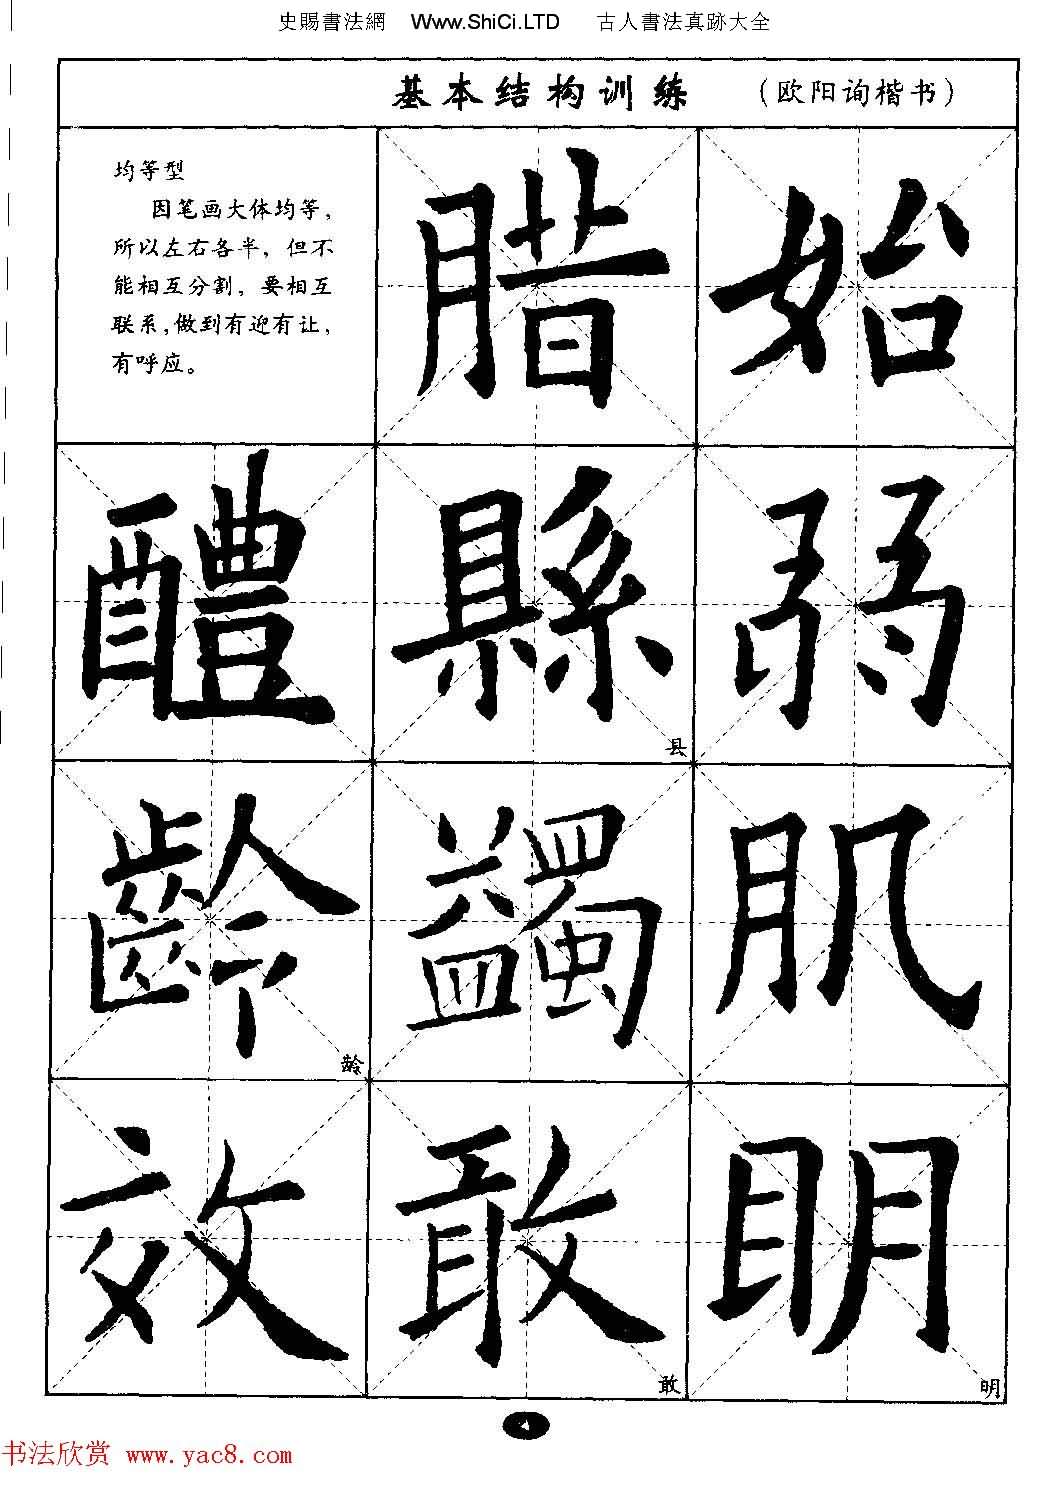 史賜書法網 Www.ShiCi.LTD 古人書法真跡大全
基本结构训练 （欧阳询楷书）
均等型
因笔画大体均等，
所以左右各半，但不
能相互分割，要相互
联系，做到有迎有让，
有呼应。
腊 始
醴 縣 弱
县
齡 蠲 肌
龄
效 敢 明
敢 明
4
书法欣赏 www.yac8.com